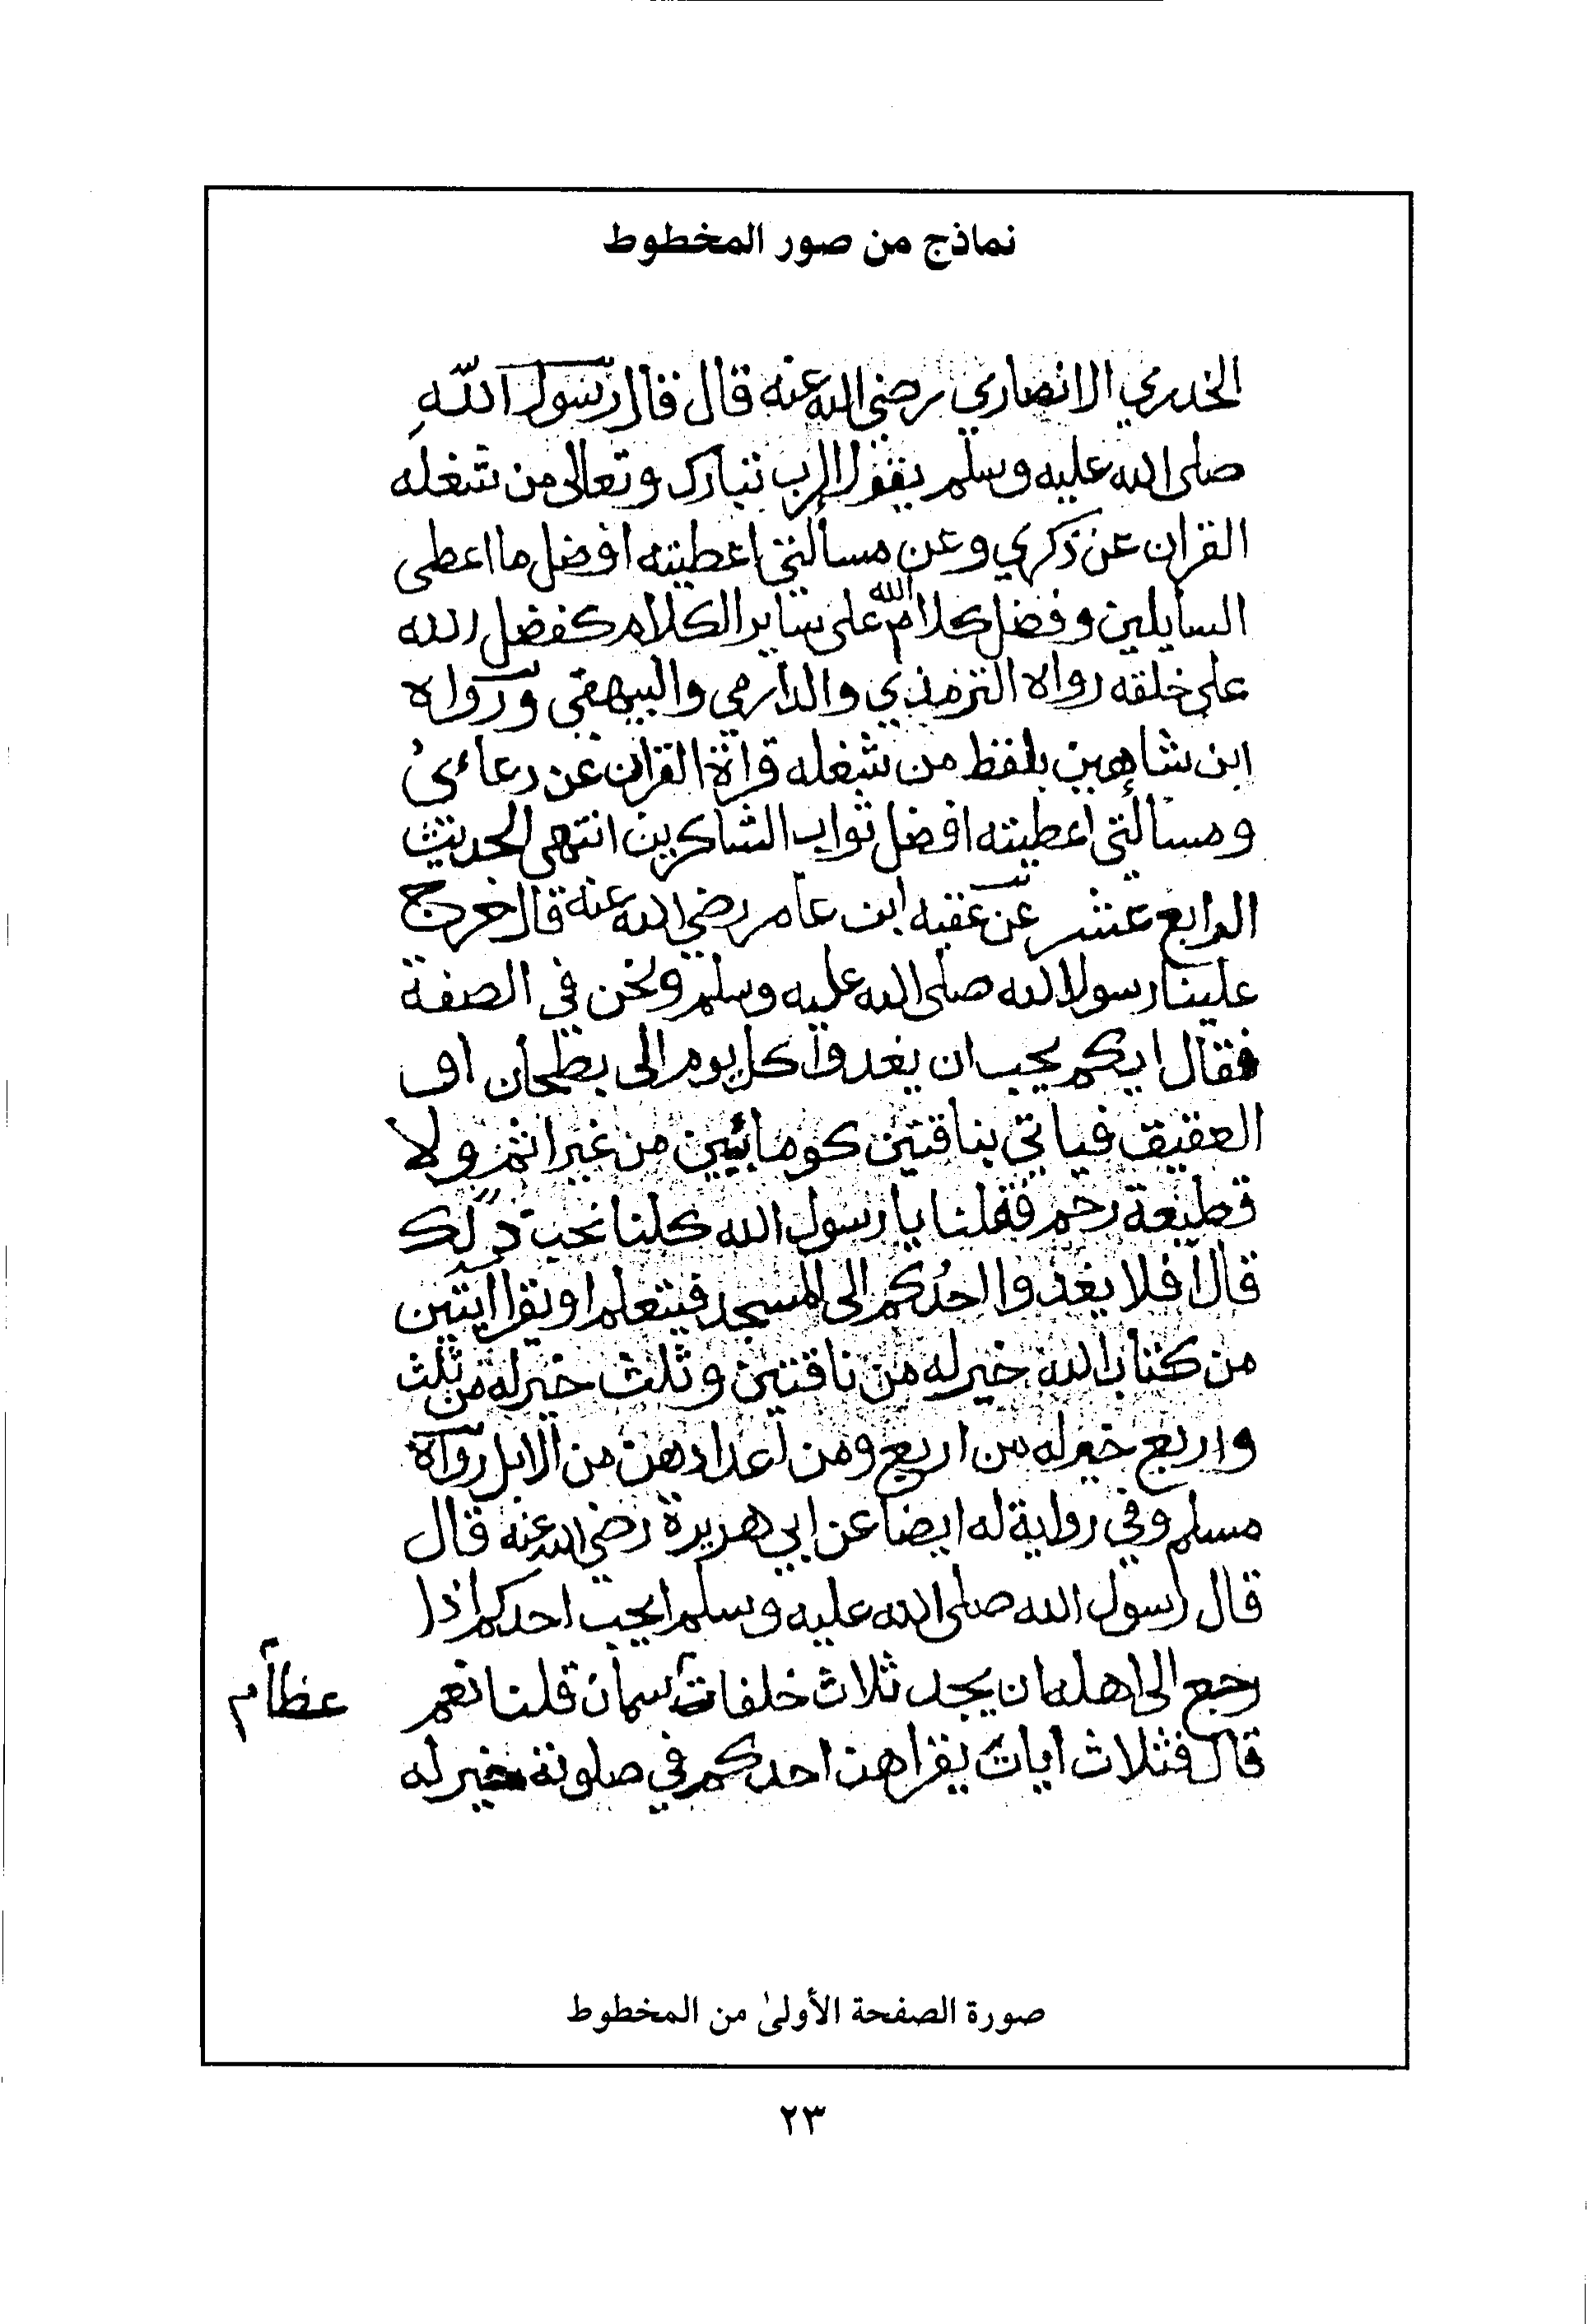 نماذج من صور المخطوط
الخدري الانصاري رضي الله عنه قال قال رسول الله
صلى الله عليه وسلم يقول الرب تبارك وتعالى من شغله
القران عن ذكري وعن مسألتي اعطيته افضل ما اعطى
السايلين وفضل كلام الله على ساير الكلام كفضل الله
على خلقه رواه الترمذي والدارمي والبيهقي ورواه
ابن شاهين بلفظ من شغله قراة القران عن دعاءي
ومسألتي اعطيته افضل ثواب الشاكرين انتهى الحديث
الرابع عشر عن عقبه ابن عامر رضي الله عنه قال خرج
علينا رسول الله صلى الله عليه وسلم ونحن في الصفة
فقال ايكم يحب ان يغدوا كل يوم الى بطحان او
العقيق فياتي بناقتين كومايين من غير اثم ولا
قطيعة رحم فقلنا يا رسول الله كلنا نحب ذلك
قال افلا يغدوا احدكم الى المسجد فيتعلم او يقرا ايتين
من كتاب الله خير له من ناقتين وثلث خير له من ثلث
واربع خير له من اربع ومن اعدادهن من الابل رواه
مسلم وفي رواية له ايضا عن ابي هريرة رضي الله عنه قال
قال رسول الله صلى الله عليه وسلم ايحب احدكم اذا
رجع الى اهله ان يجد ثلاث خلفات سمان قلنا نعم
عظام
قال فثلاث ايات يقراهن احدكم في صلوته خير له
صورة الصفحة الأولىٰ من المخطوط
٢٣